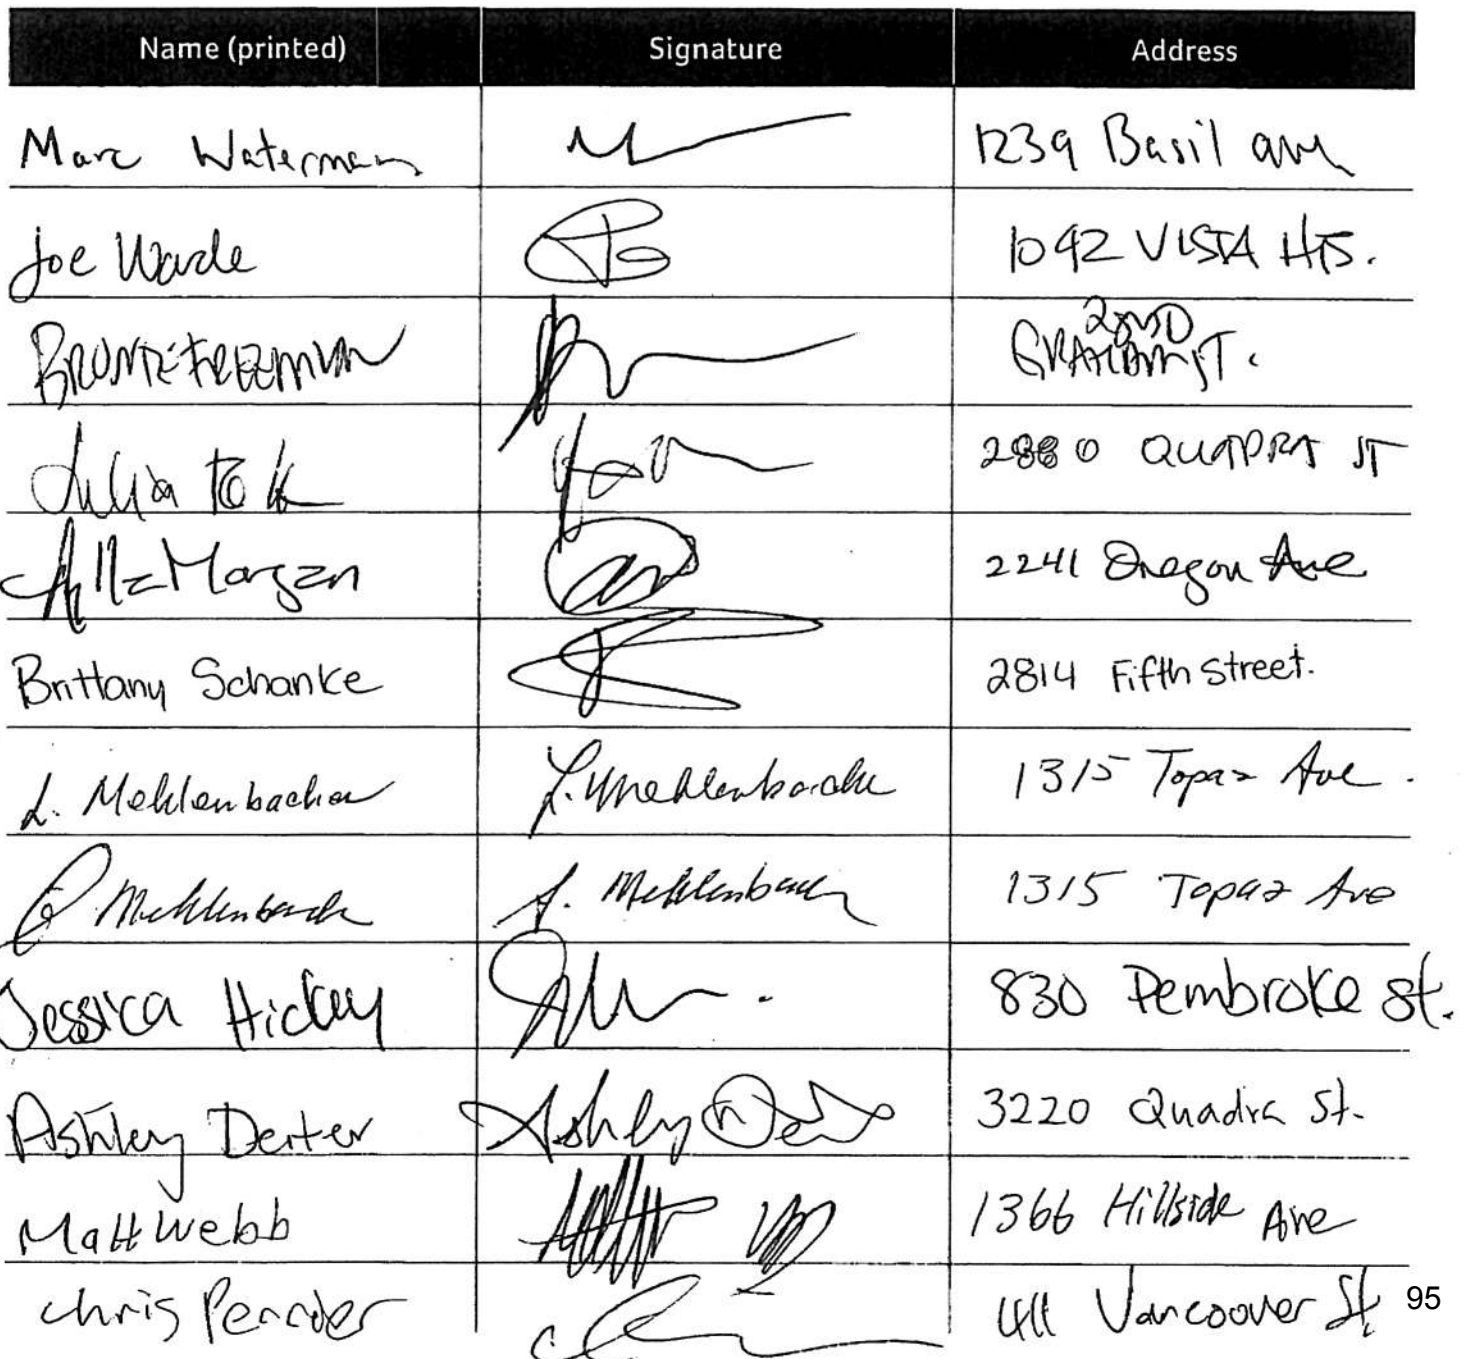 Name (printed) Signature Address
Marc Waterman 1239 Basil ave
Joe Wade 1092 VISTA HTS.
2ND
FREEMAN GRAHAM ST.
Julia 2880 QUADRA ST
Morgan 2241 Oregon Ave
Brittany Schanke 2814 Fifth Street.
L. Mehlenbacher L. Mehlenbacher 1315 Topaz Ave.
Mehlenbacher Mehlenbacher 1315 Topaz Ave
Jessica Hickey 830 Pembroke St.
Ashley Dexter Ashley 3220 Quadra St.
Matt Webb 1366 Hillside Ave
Chris Vancoover St.
95